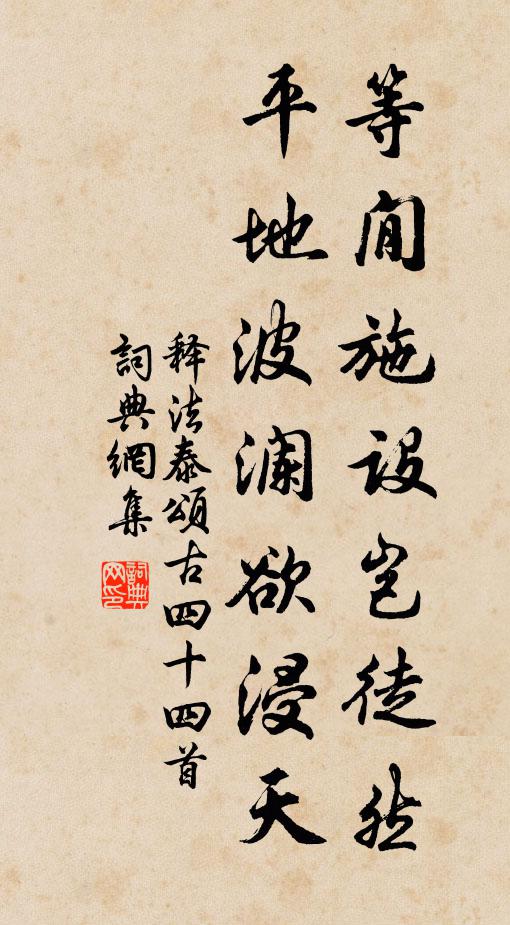 等閒施設豈徒然
平地波瀾欲浸天
释法泰頌古四十四首
詞典網集
詞典网印